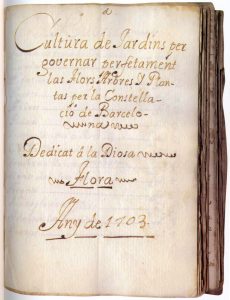 a
Cultura de Jardins per
governar perfetament
las flors Arbres Y Plan-
tas per la Constella-
ció de Barcelo-
na
Dedicat á la Diosa
Flora
Any de 1703.